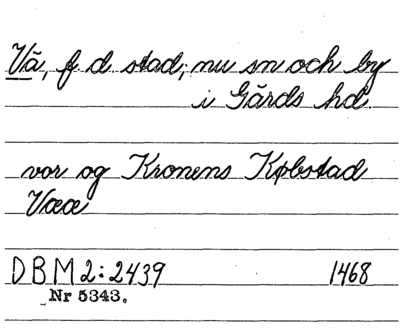 Vä, f d stad, nu sn och by
i Gärds hd.
vor og Kronens Købstad
Vææ
DBM 2:2439 1468
Nr 5343.